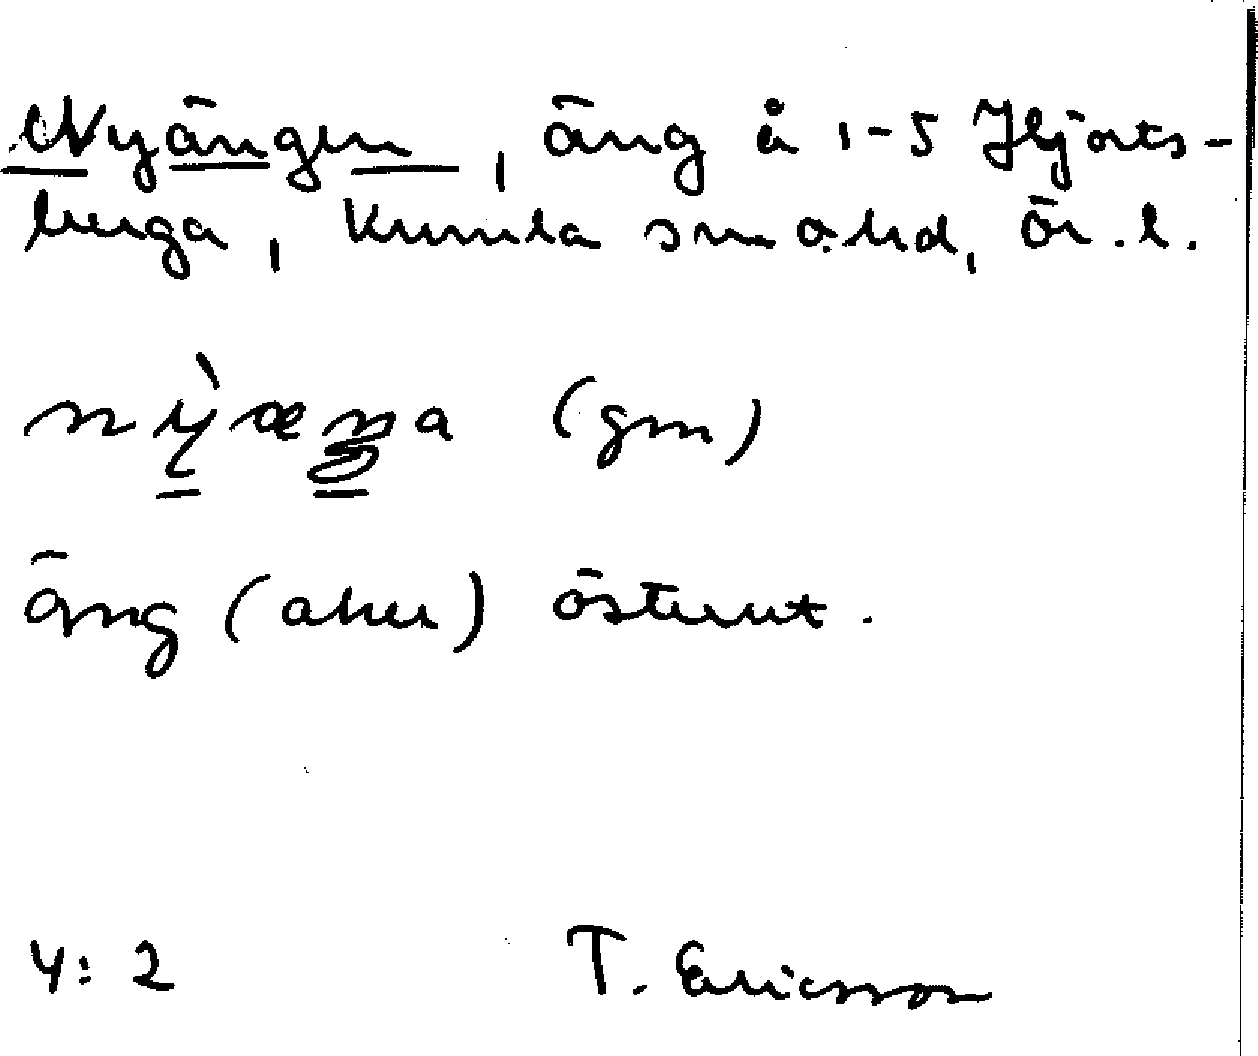 Nyängen, äng å 1-5 Hjorts-
berga, Kumla sn o. hd, Ör. l.
nỳæŋa (gm)
äng (åker) österut.
4:2 T. Ericsson